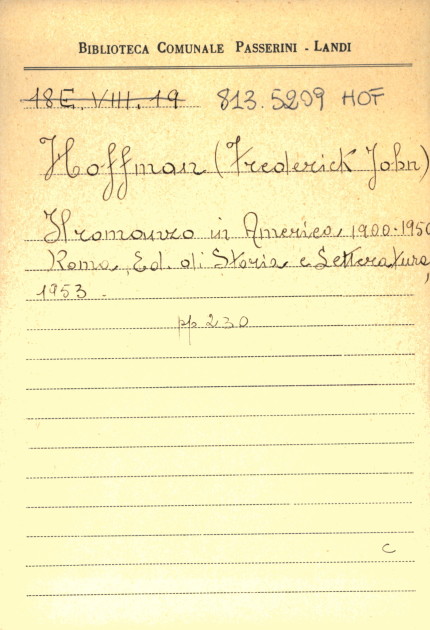 BIBLIOTECA COMUNALE PASSERINI - LANDI
18E. VIII. 19 813.5209 HOF
Hoffman (Frederick John)
Il romanzo in America 1900-1950
Roma, Ed. di Storia e Letteratura,
1953.
pp 230
C